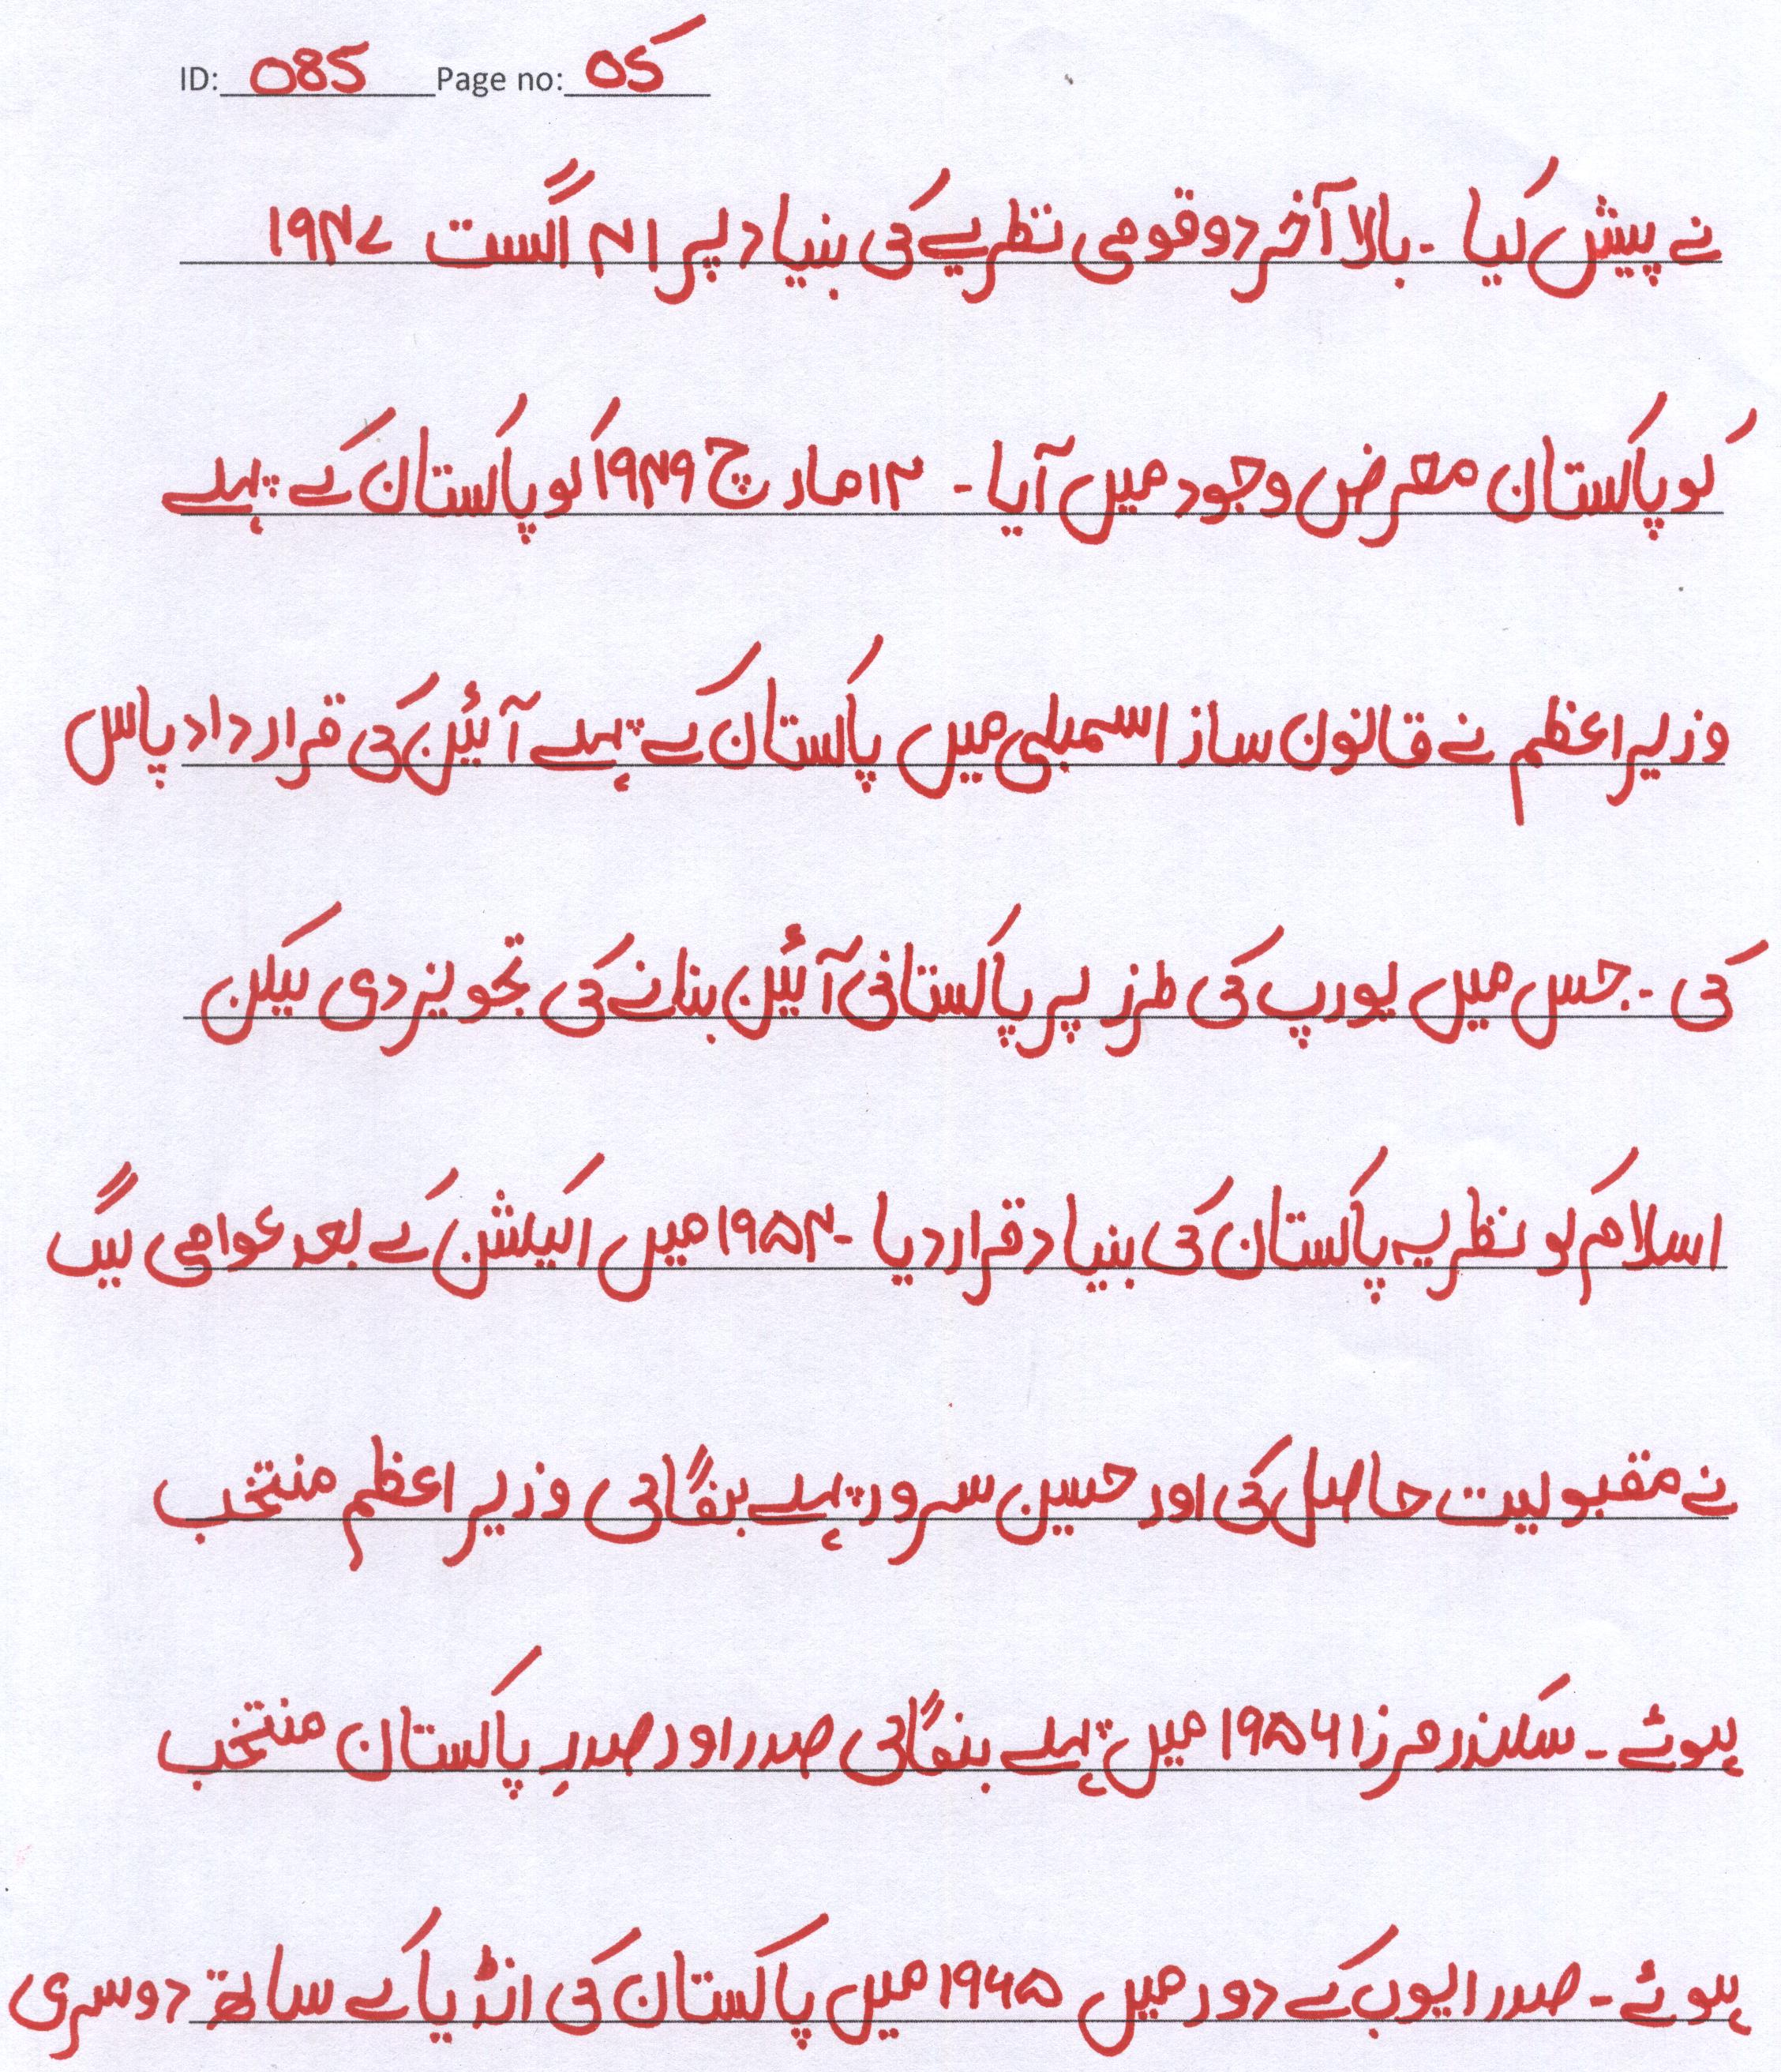 ID: 085 Page no: 05
نے پیش کیا ۔ بالا آخر دو قومی نظریے کی بنیاد پر ۱۴ اگست ۱۹۴۷
کو پاکستان معرض وجود میں آیا ۔ ۱۲ مارچ ۱۹۴۹ کو پاکستان کے پہلے
وزیر اعظم نے قانون ساز اسمبلی میں پاکستان کے پہلے آئین کی قرار داد پاس
کی ۔ جس میں یورپ کی طرز پر پاکستانی آئین بنانے کی تجویز دی لیکن
اسلام کو نظریہ پاکستان کی بنیاد قرار دیا ۔ ۱۹۵۴ میں الیکشن کے بعد عوامی لیگ
نے مقبولیت حاصل کی اور حسین سرور پہلے بنگالی وزیر اعظم منتخب
ہوئے ۔ سکندر مرزا ۱۹۵۶ میں پہلے بنگالی صدر اور صدرِ پاکستان منتخب
ہوئے ۔ صدر ایوب کے دور میں ۱۹۶۵ میں پاکستان کی انڈیا کے ساتھ دوسری